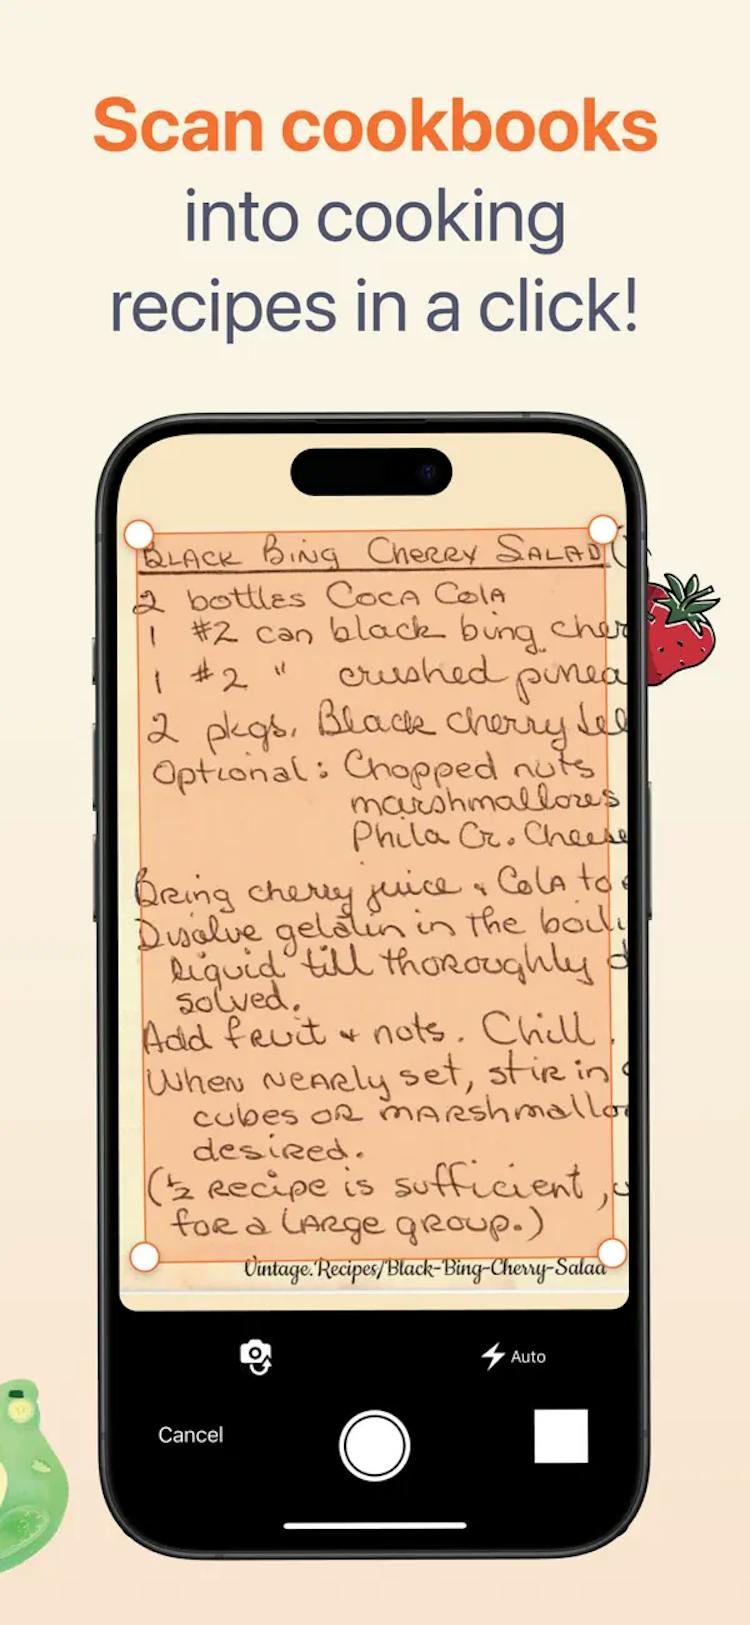 Scan cookbooks
into cooking
recipes in a click!
BLACK BING CHERRY SALAD (
2 bottles COCA COLA
1 #2 can black bing cher
1 #2 " crushed pinea
2 pkgs. Black cherry Jel
Optional: Chopped nuts
marshmallows
Phila Cr. Cheese
Bring cherry juice & COLA to
Disolve gelatin in the boili
liquid till thoroughly d
solved.
Add fruit & nots. Chill.
When nearly set, stir in c
cubes or marshmallo
desired.
(½ recipe is sufficient, u
for a large group.)
Vintage.Recipes/Black-Bing-Cherry-Salad
Auto
Cancel